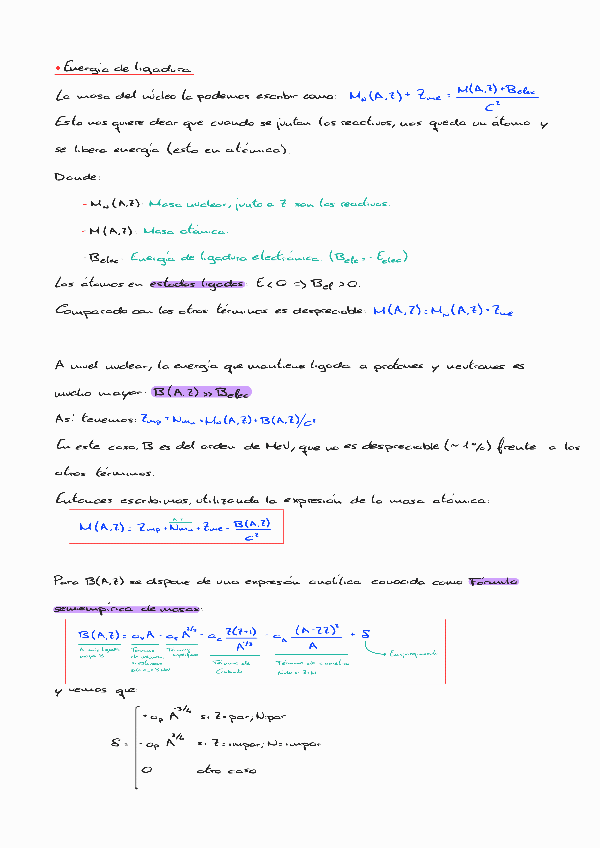 • Energía de ligadura
La masa del núcleo la podemos escribir como: M_N(A,Z) + Zme = (M(A,Z) + Belec)/c²
Esto nos quiere decir que cuando se juntan los reactivos, nos queda un átomo y
se libera energía (esto en atómica).
Donde:
- M_N(A,Z) Masa nuclear, junto a Z son los reactivos.
- M(A,Z) Masa atómica.
- Belec Energía de ligadura electrónica (Belec = -Eelec)
Los átomos en estados ligados: E < 0 => Bel > 0.
Comparado con los otros términos es despreciable: M(A,Z) = M_N(A,Z) + Zme
A nivel nuclear, la energía que mantiene ligada a protones y neutrones es
mucho mayor: B(A,Z) >> Belec
Así tenemos: Zmp + Nmn = M_N(A,Z) + B(A,Z)/c²
En este caso, B es del orden de MeV, que no es despreciable (~1%) frente a los
otros términos.
Entonces escribimos, utilizando la expresión de la masa atómica:
M(A,Z) = Zmp + Nmn + Zme - B(A,Z)/c²
Para B(A,Z) se dispone de una expresión analítica conocida como Fórmula
semiempírica de masas:
B(A,Z) = a_v A - a_s A^2/3 - a_c Z(Z-1)/A^1/3 - a_A (A-2Z)²/A + δ
Término de
Coulomb
y vemos que:
δ =
a_p A^-3/4 si Z=par; N=par
-a_p A^3/4 si Z=impar; N=impar
0 otro caso